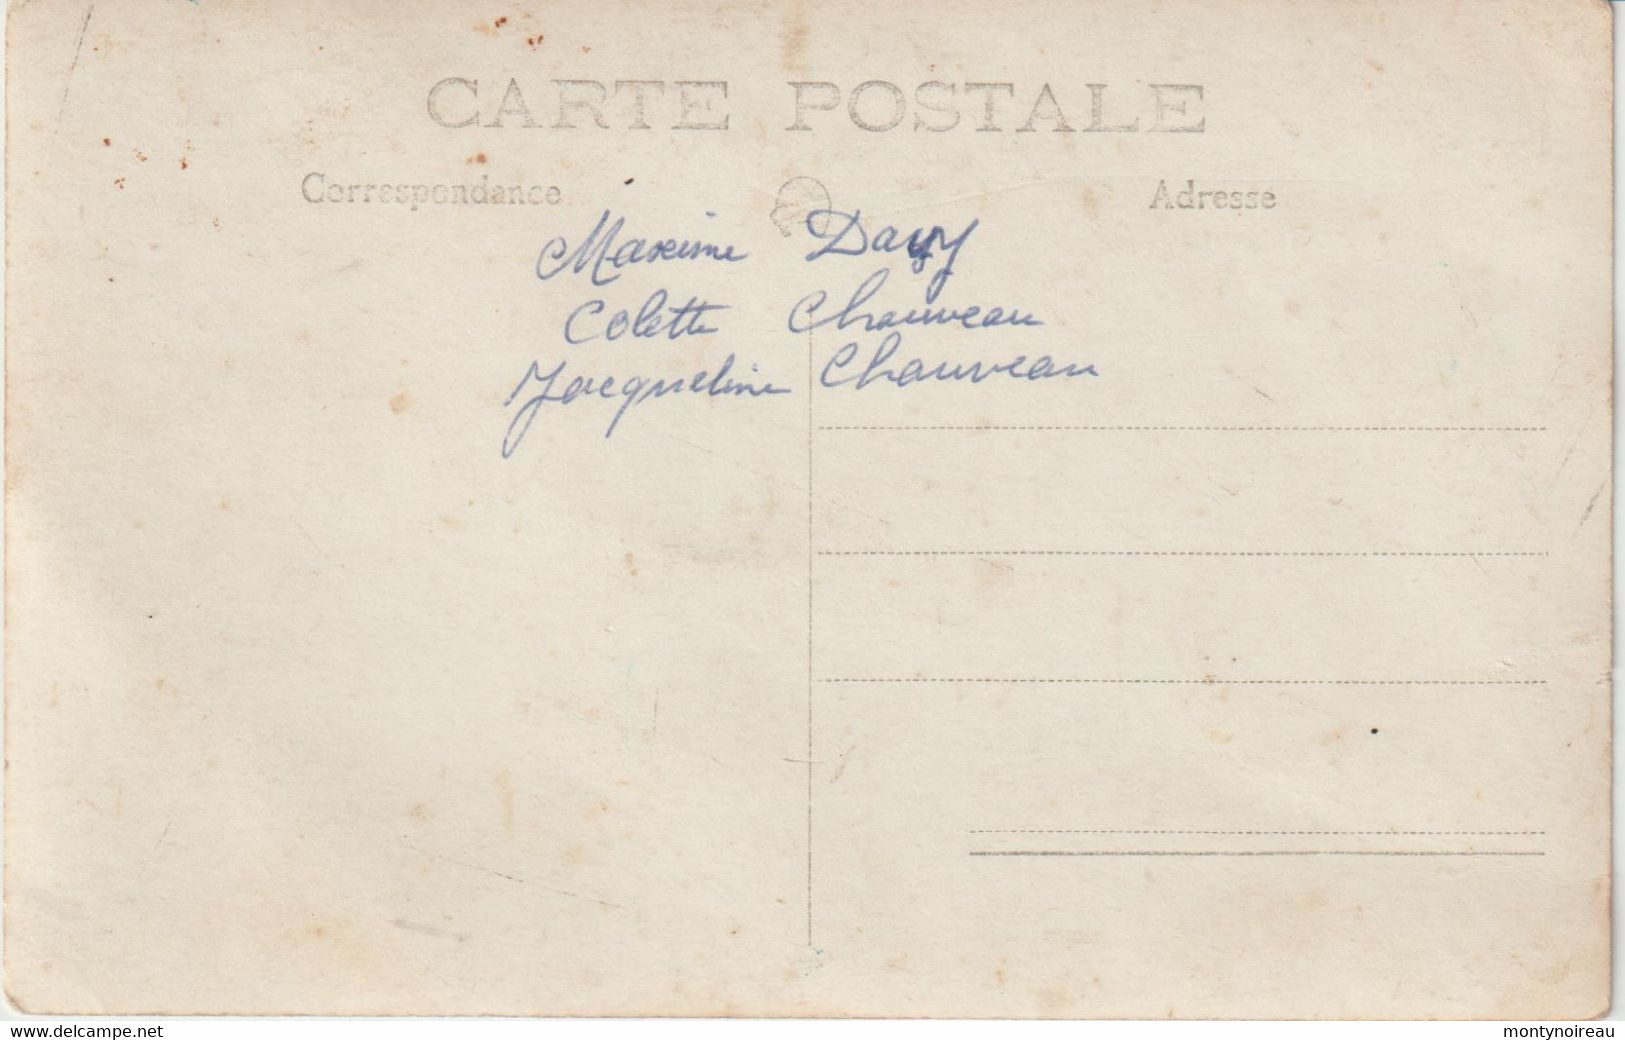 CARTE POSTALE
Correspondance Adresse
Maxime Davy
Colette Chauveau
Jacqueline Chauveau
www.delcampe.net montynoireau